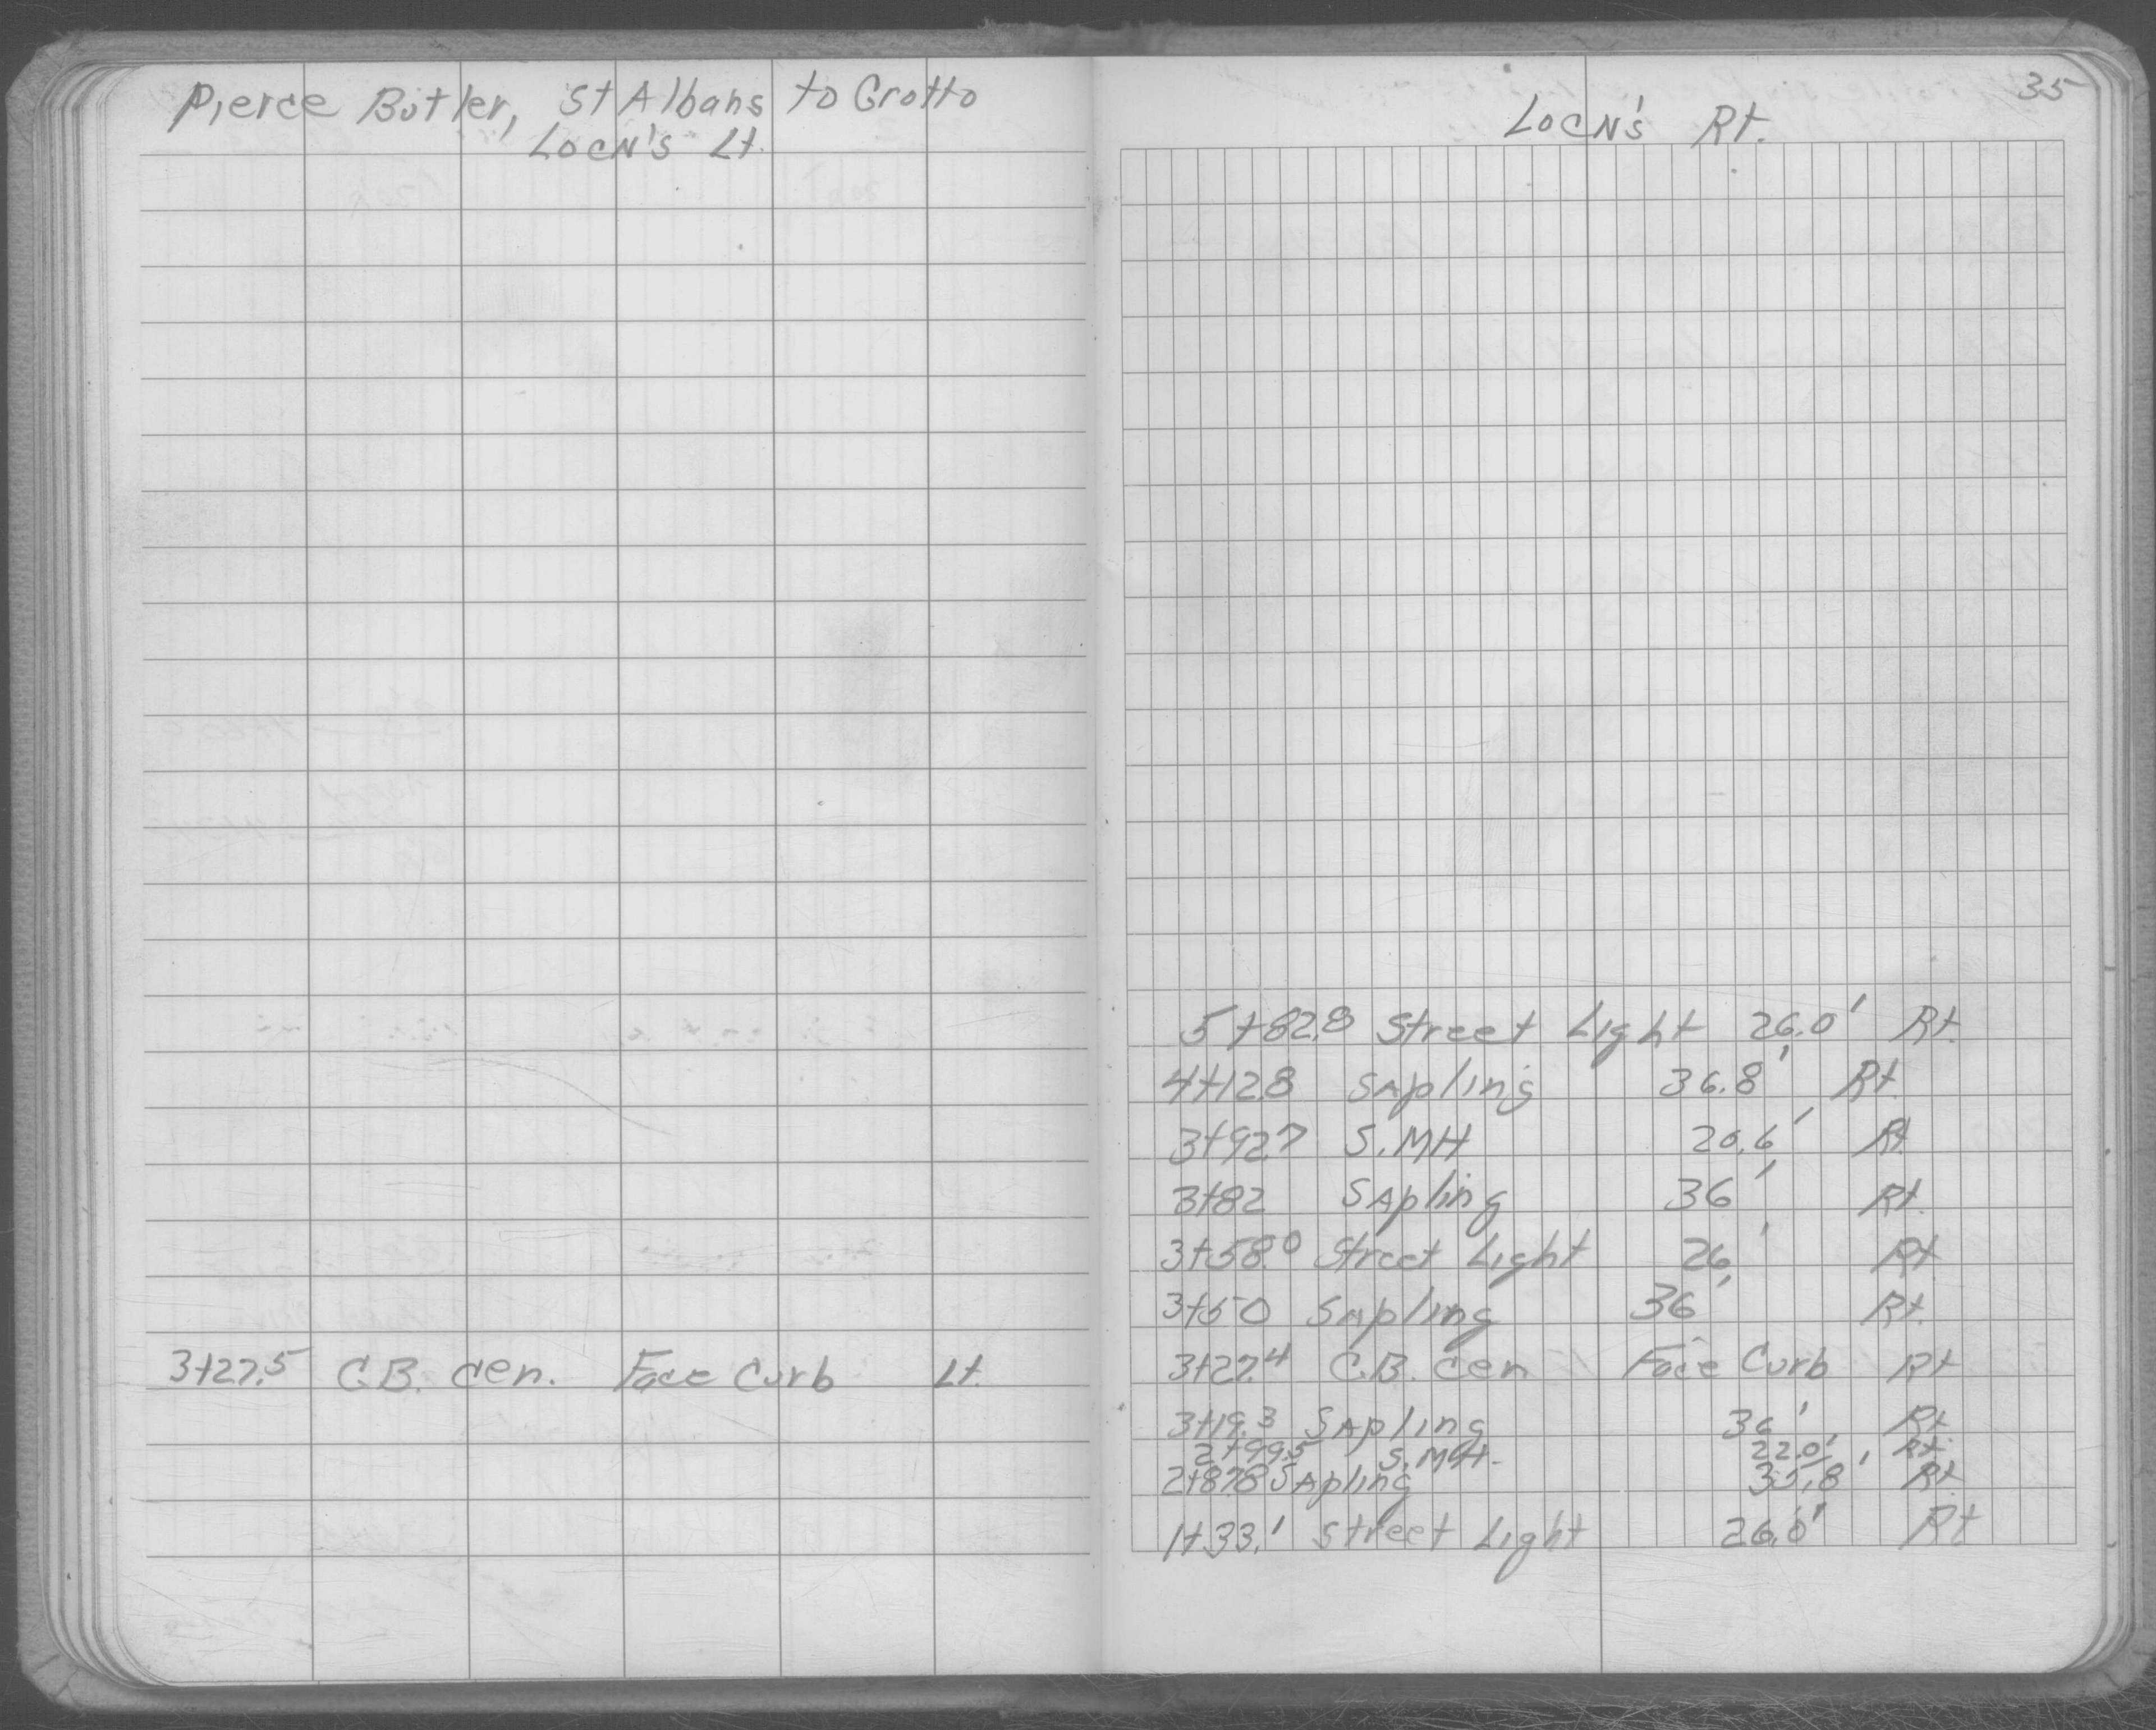 Pierce Butler, St Albans to Grotto
Locn's Lt.
3+27.5 C.B. cen. Face Curb Lt.
35
Locn's Rt.
5+82.8 Street Light 26.0' Rt.
4+12.8 Sapling 36.8' Rt.
3+92.7 S.MH 20.6' Rt.
3+82 Sapling 36' Rt.
3+58.0 Street Light 26' Rt.
3+50 Sapling 36' Rt.
3+27.4 C.B. cen Face Curb Rt
3+19.3 Sapling 36' Rt.
2+99.5 S.MH. 22.0' Rt.
2+87.8 Sapling 35.8' Rt.
1+33.1 Street Light 26.0' Rt